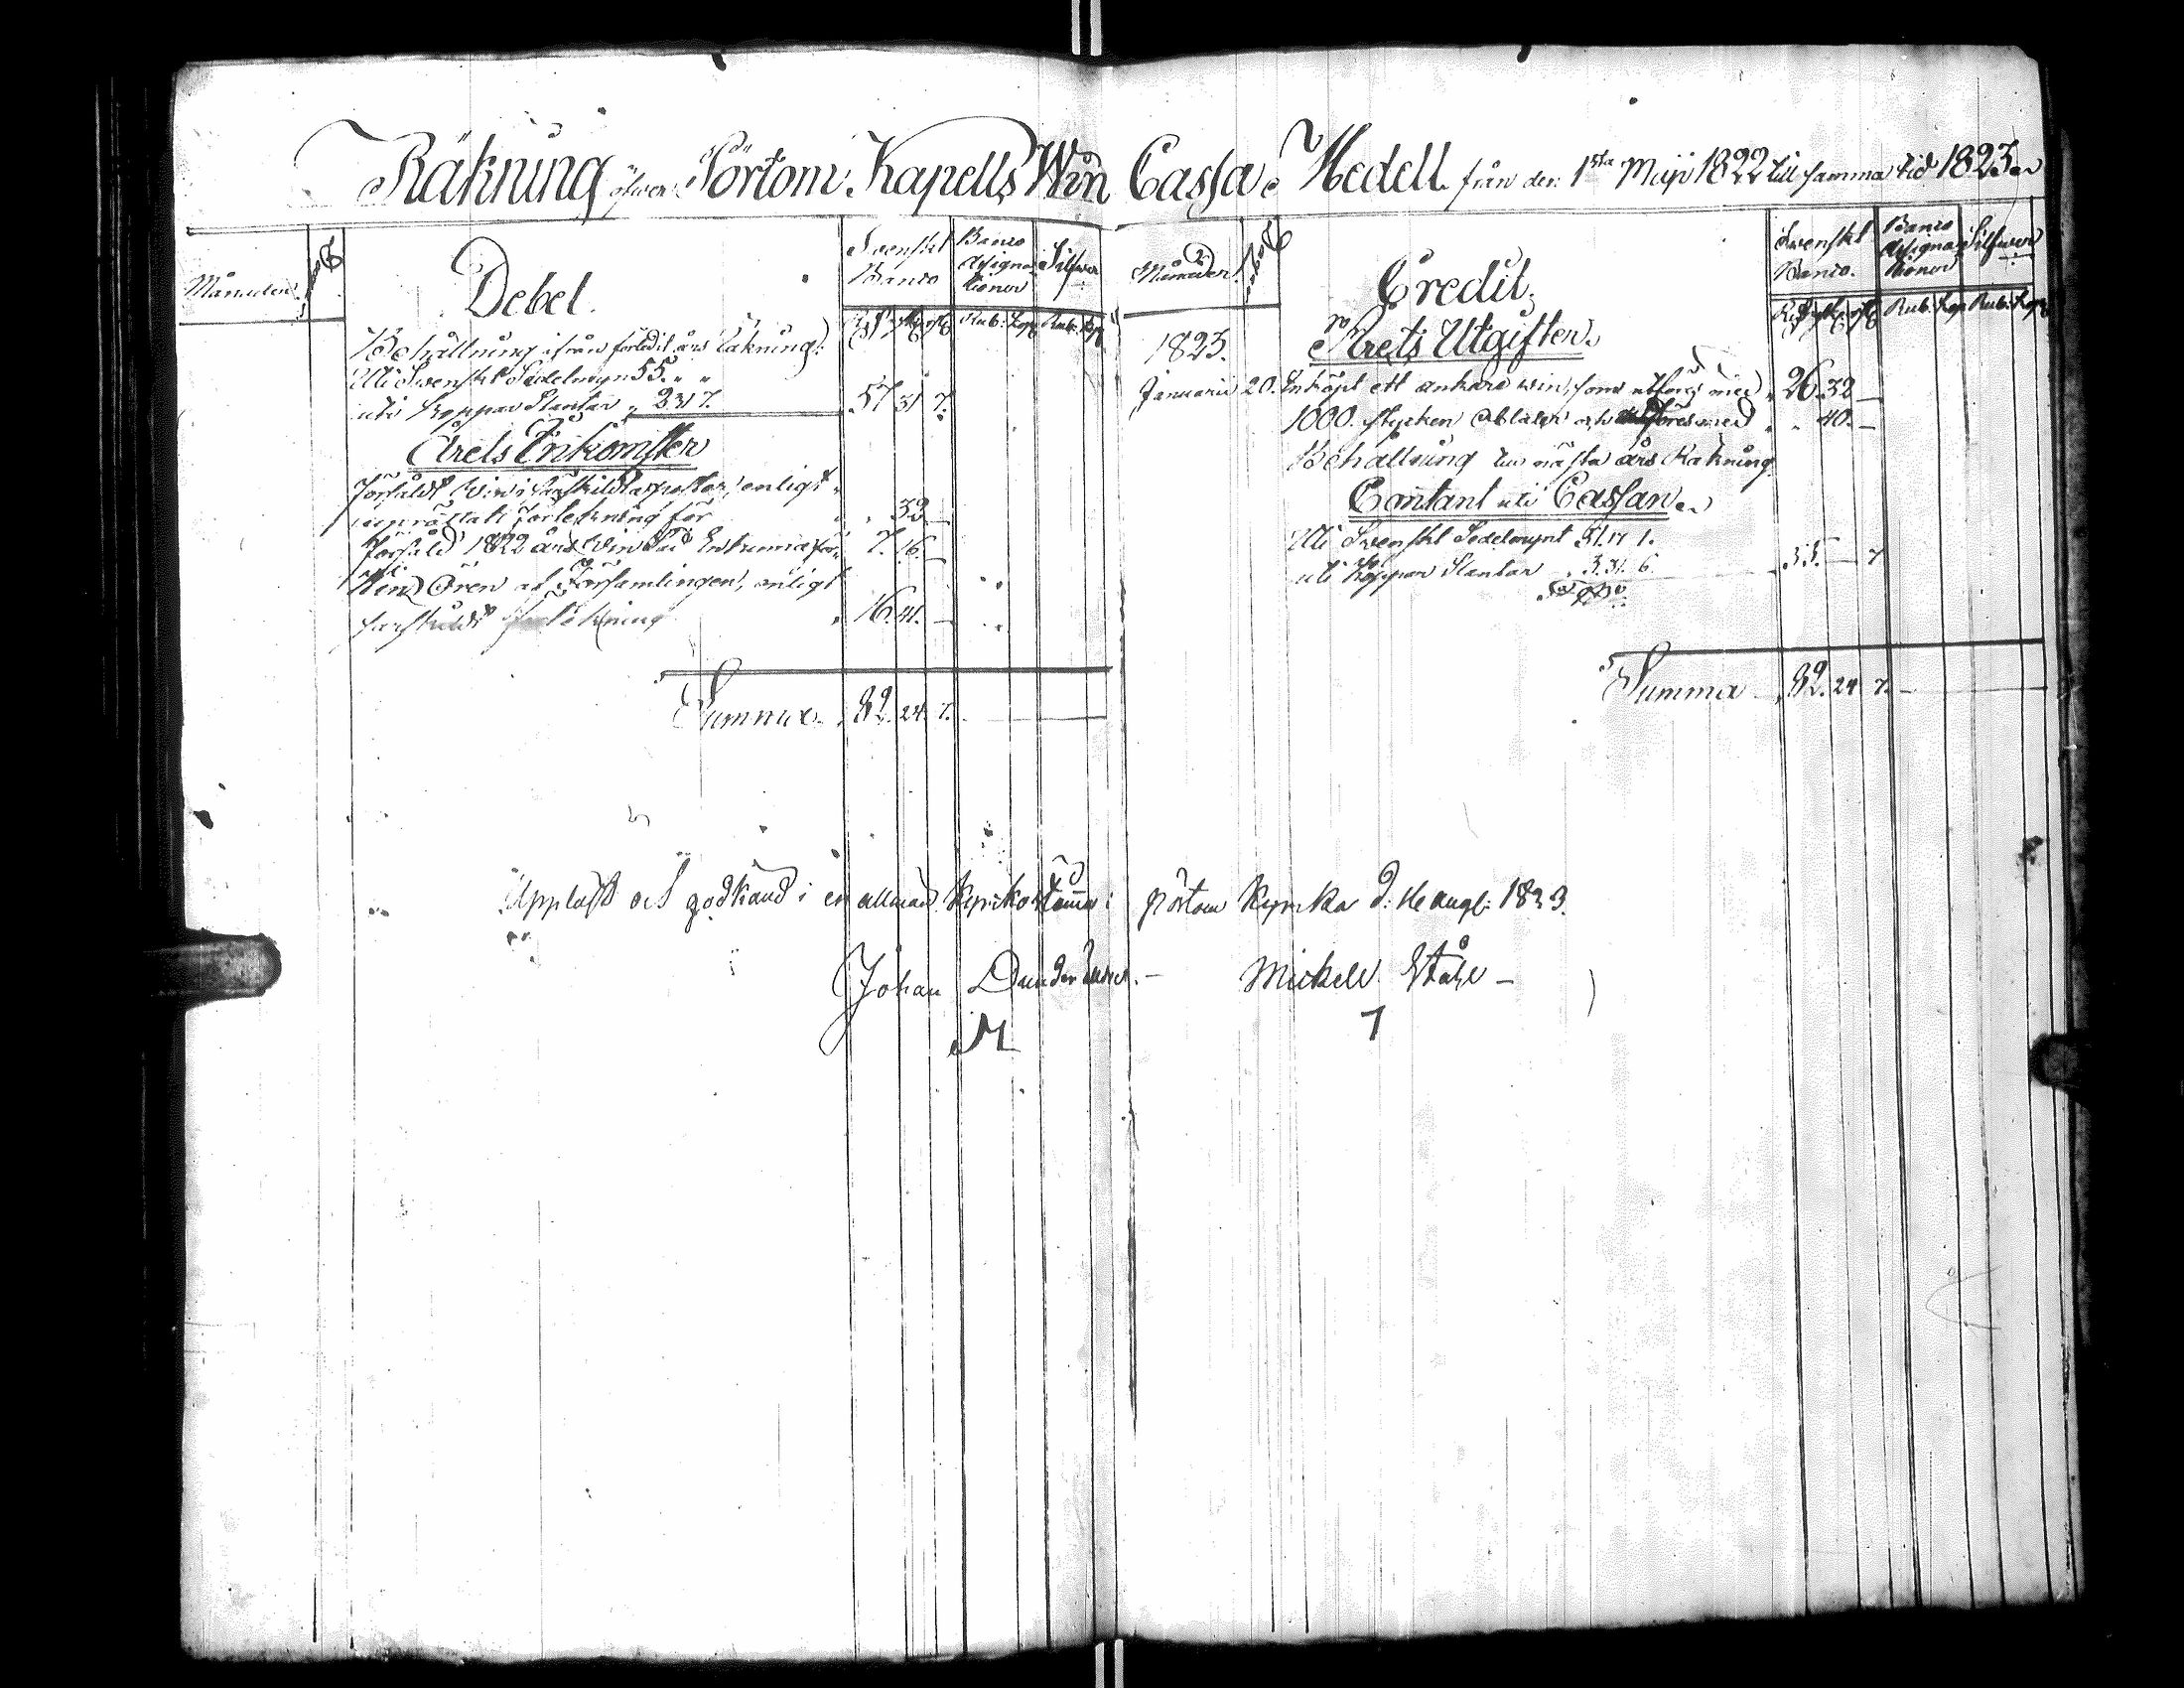 Räkning öfwer Pörtom Kapells Win Cassa Medell från den 1sta Maji 1822 till samma tid 1823.
Månader
Debet.
Swenskt Banco
Banco Assignationer
Silfwer
Rub: Kop Rub: Kop
Behållning ifrån förledit års Räkning:
Uti Swenskt Sedelmynt 55. " "
uti Koppar Slantar " 2 31 7. 57 31 7.
Årets Inkomster
Försåldt Win i särskildta poster, enligt
uprättatt förtekning för " 32 —
Försåld 1822 års Win Säd Enkumia för 7. 16. —
Win Ören af Församlingen, enligt
särskildt förtekning 16. 41. —
Summa 82. 24. 7.
Månader
Credit.
Swenskt Banco.
Banco Assignationer
Silfwer
Rub: Kop Rub: Kop
1823. Årets Utgifter.
Januarii 20. Inköpt ett ankare win, som utföres med 26. 32 —
1000. stycken Oblater och utföres med " 40. —
Behållning till nästa års Räkning
Contant uti Cassan.
Uti Swenskt Sedelmynt 51. 17 1.
uti Koppar Slantar 3. 31. 6. 55. — 7
Summa 82. 24 7. —
Uppläst och godkänd i en allmän Kyrkostämma i Pörtom Kyrka d: 16 Aug: 1823.
Johan Dunder Mickell Ståhl —